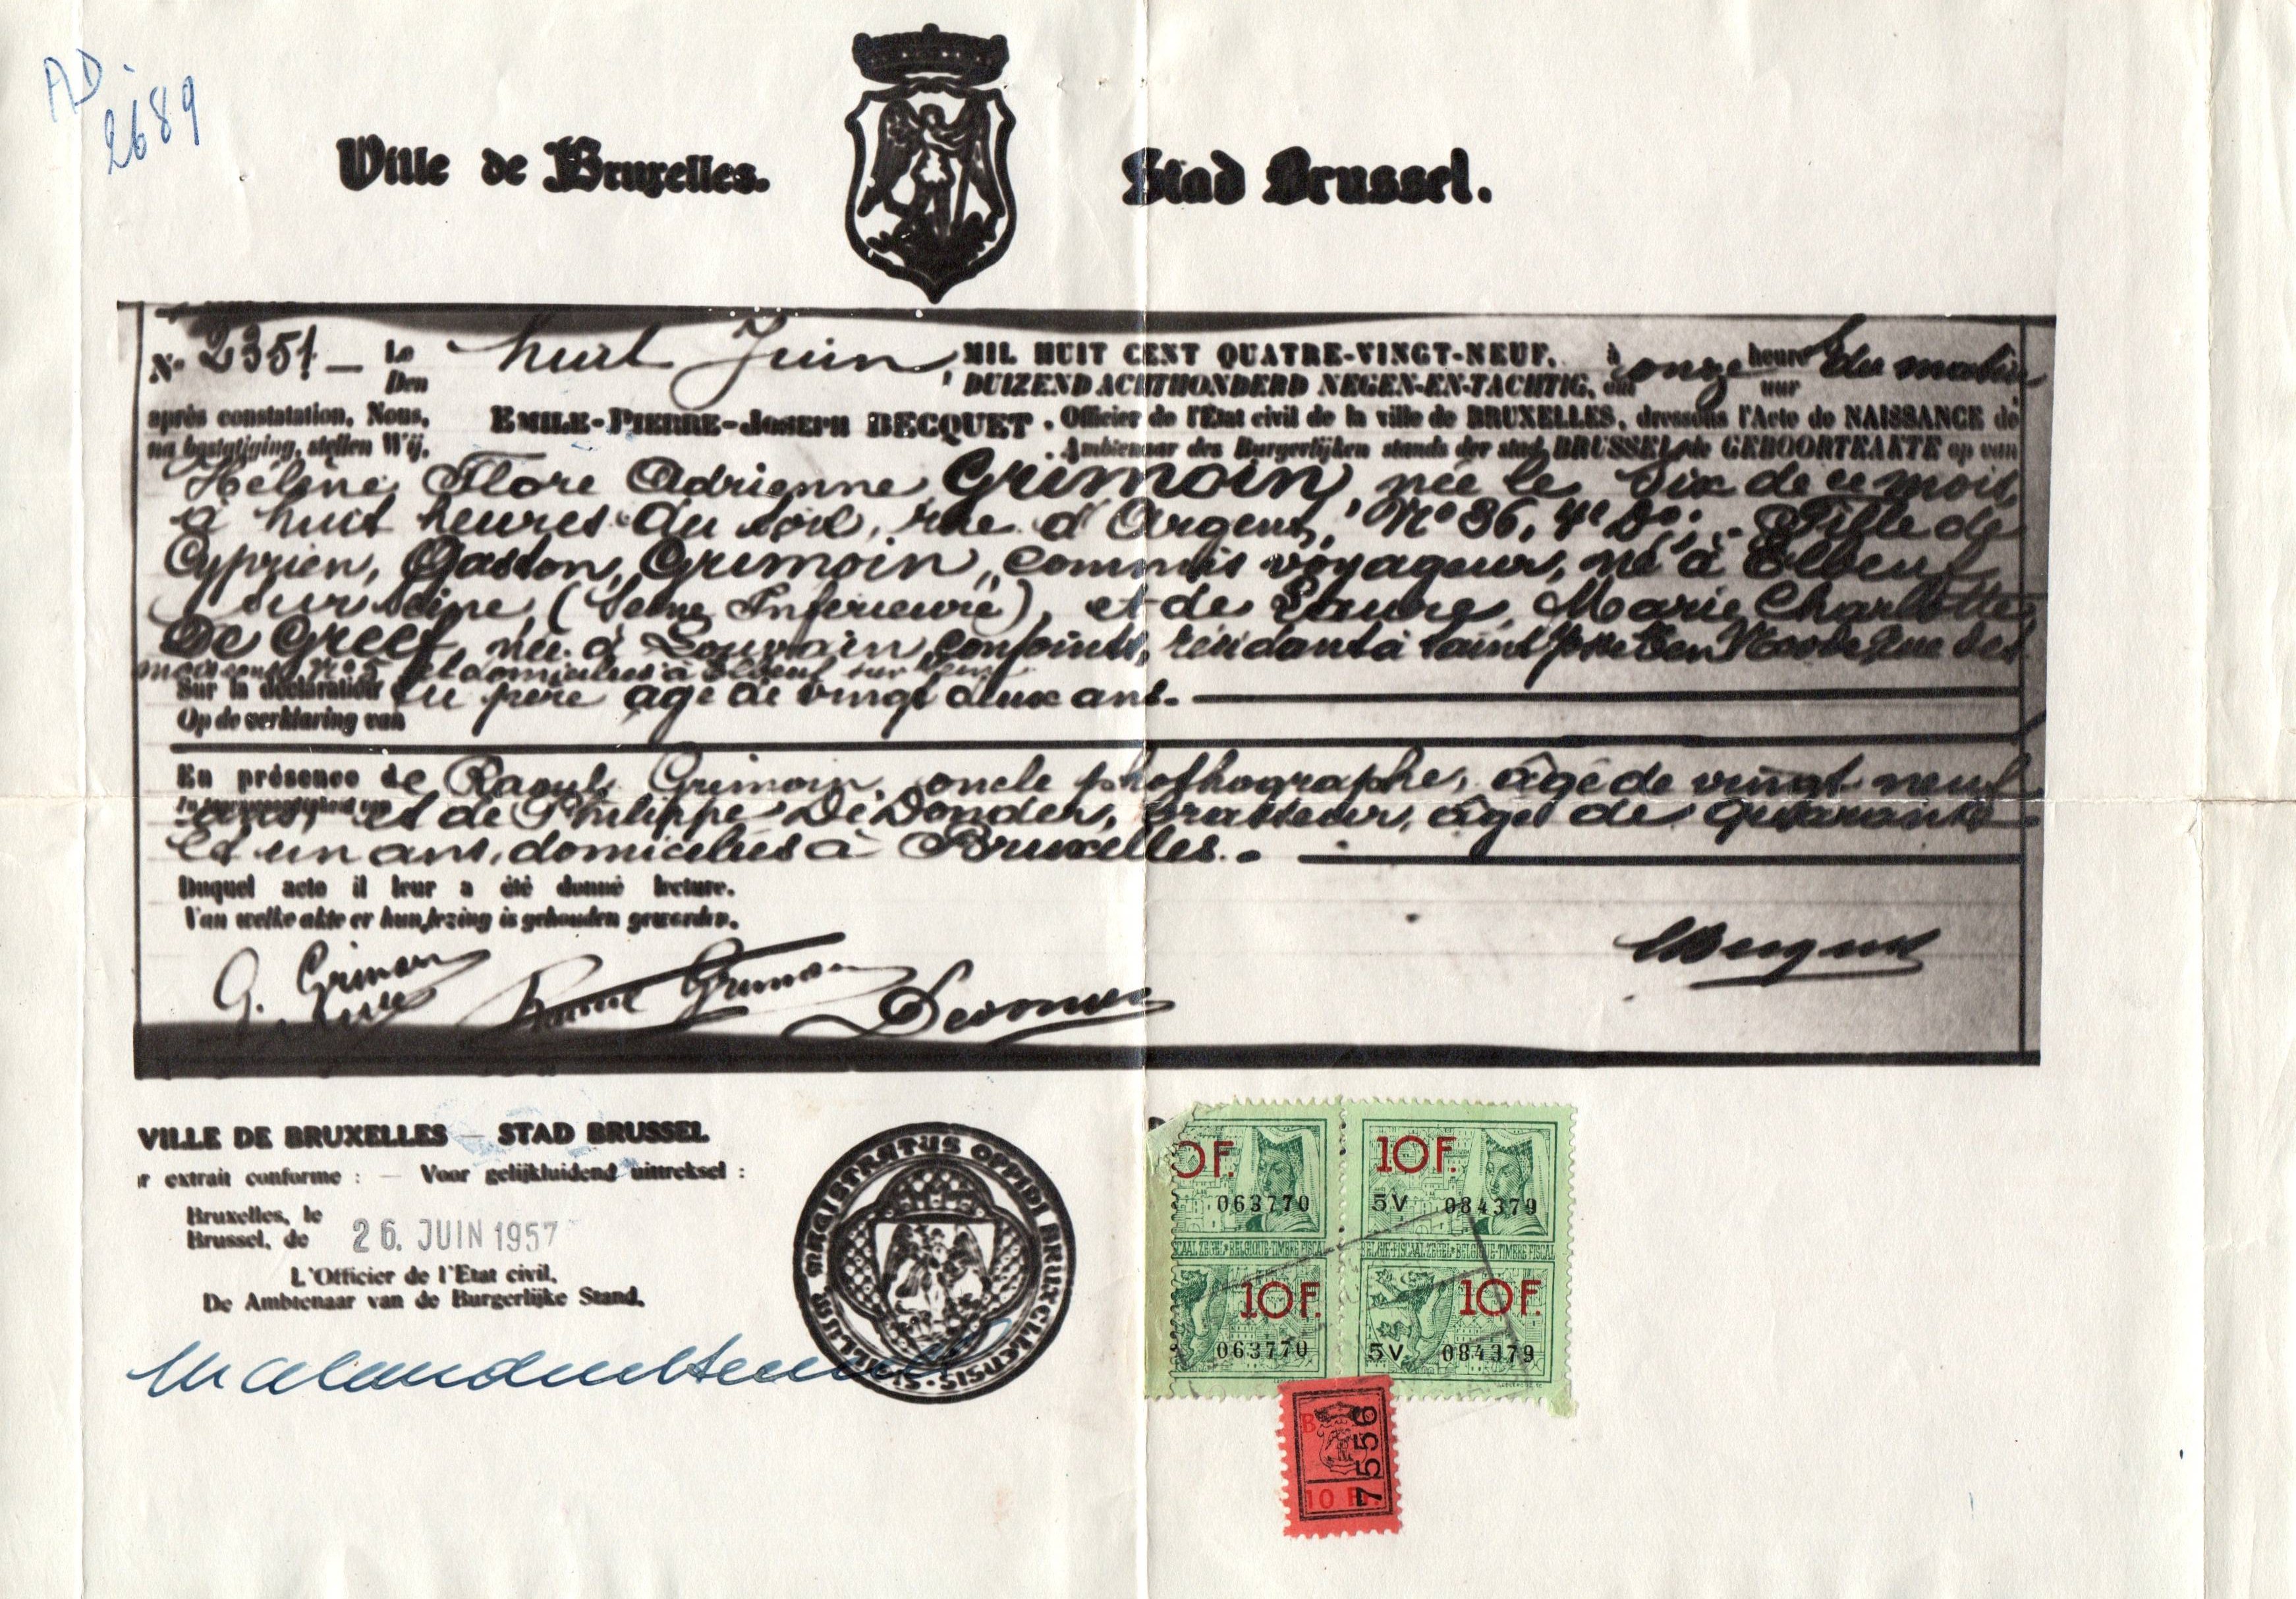 AD.
2689
Ville de Bruxelles. Stad Brussel.
No 2351 — Le huit Juin MIL HUIT CENT QUATRE-VINGT-NEUF, à onze heures du matin
Den DUIZEND ACHTHONDERD NEGEN-EN-TACHTIG, uur
après constatation, Nous, EMILE-PIERRE-JOSEPH BECQUET, Officier de l'État civil de la ville de BRUXELLES, dressons l'Acte de NAISSANCE de
na bestatiging, stellen Wij, Ambtenaar des Burgerlijken stands der stad BRUSSEL, de GEBOORTEAKTE op van
Hélène Flore Adrienne Grimoin, née le six de ce mois,
à huit heures du soir, rue d'Argent, No 36, 4e Don; Fille de
Cyprien, Gaston, Grimoin, commis voyageur, né à Elbeuf
sur Seine, (Seine Inférieure), et de Laure, Marie Charlotte
De Greef, née à Louvain, conjoints, résidant à Saint Josse ten Noode, rue des
No 5 et domiciliés à Elbeuf sur Seine
Sur la déclaration du père âgé de vingt deux ans.
Op de verklaring van
En présence de Raoul Grimoin, oncle phothographe, âgé de vingt neuf
In tegenwoordigheid van ans, et de Philippe De Donder, brasseur, âgé de quarante
et un ans, domiciliés à Bruxelles.
Duquel acte il leur a été donné lecture.
Van welke akte er hun lezing is gehouden geworden.
G. Grimoin Raoul Grimoin Dedonder EBecquet
VILLE DE BRUXELLES — STAD BRUSSEL
r extrait conforme : — Voor gelijkluidend uittreksel :
Bruxelles, le
Brussel, de 26. JUIN 1957
L'Officier de l'Etat civil,
De Ambtenaar van de Burgerlijke Stand,
SIGILLUM MAGISTRATUS OPPIDI BRUXELLENSIS
0F. 10F.
063770 5V 084379
SCAAL ZEGEL-BELGIQUE-TIMBRE FISCAL BELGIE-FISCAAL ZEGEL-BELGIQUE-TIMBRE FISCAL
10F. 10F.
063770 5V 084379
B
7556
10 F